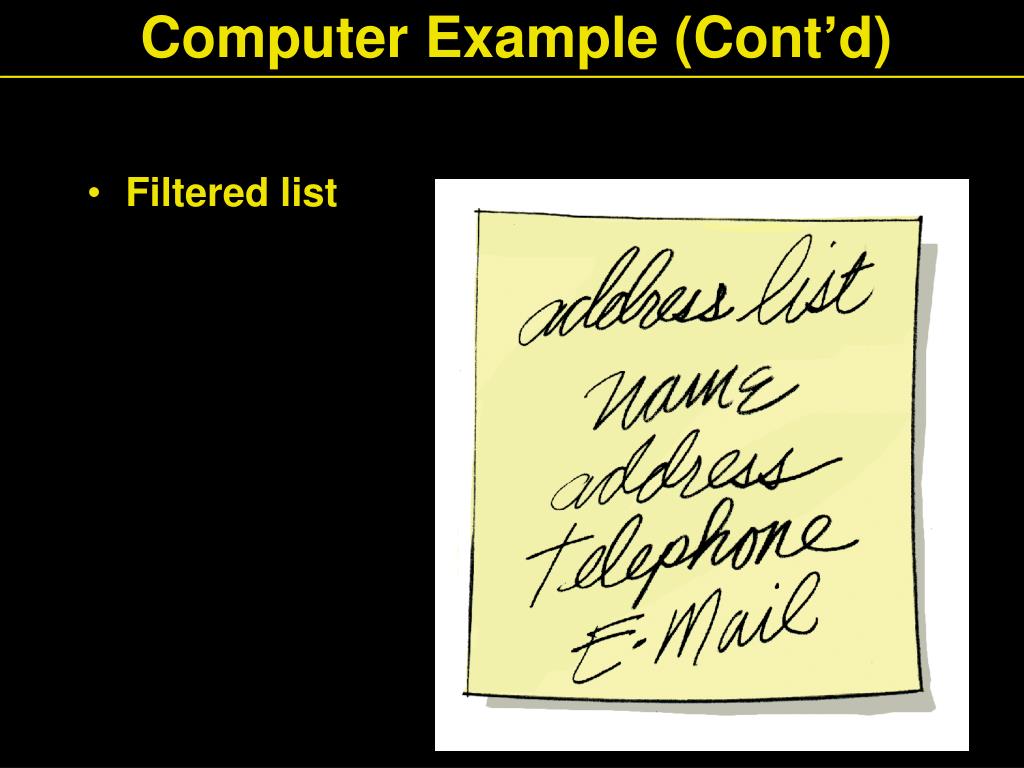 Computer Example (Cont’d)
• Filtered list
address list
name
address
telephone
E-Mail